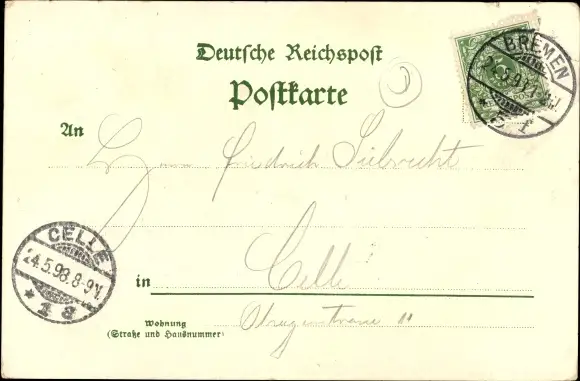 Deutsche Reichspost
Postkarte
BREMEN
1
An Herrn Friedrich Siebrecht
CELLE
24.5.98.8-9V.
* 1 a
in Celle
Wohnung
(Straße und Hausnummer)
11